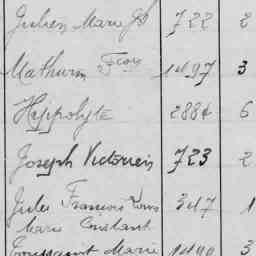 Julien Marie Js 722 2
Mathurin Fçois 1497 3
Hippolyte 2884 6
Joseph Victorien 723 2
Jules François Louis 347 1
Marie Constant
Toussaint Marie 1490 3